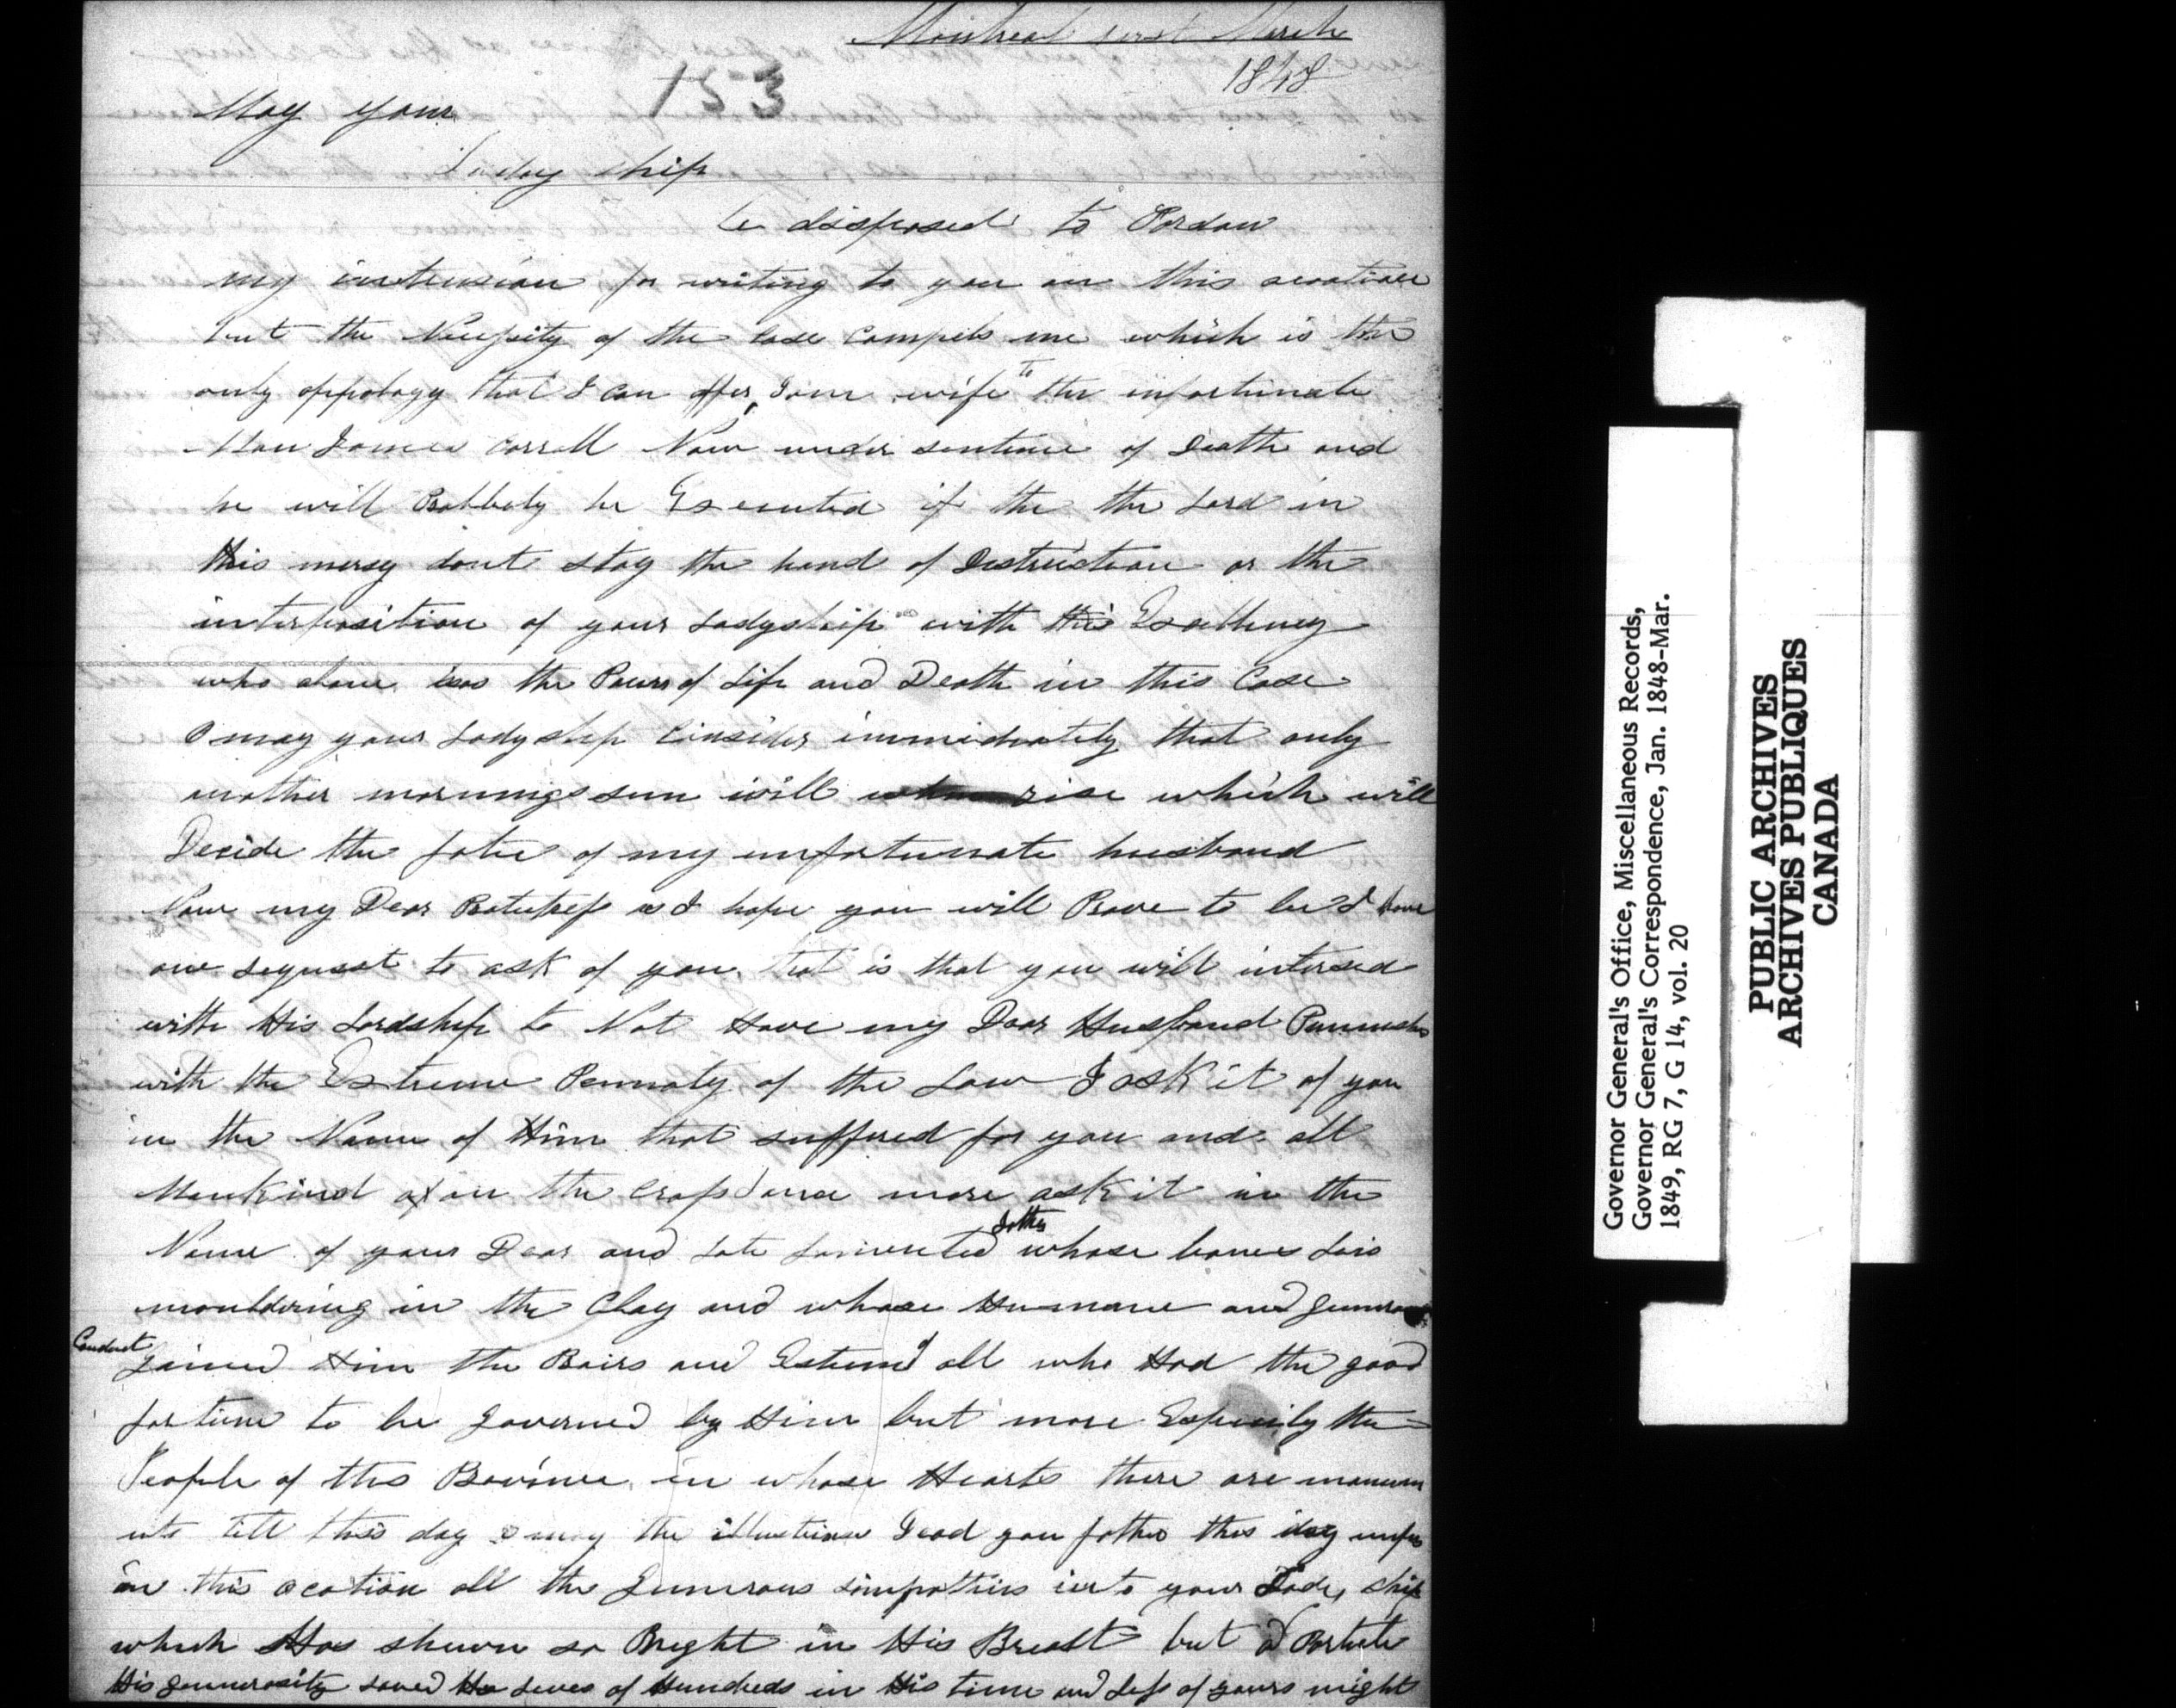 Montreal first March
1848
153
May your
Lady ship
be disposed to Pardon
my intension for writing to you on this acoation
but the Necessity of the Case Compels me which is the
only oppology that I can offer, I am wife to the unfortunate
Man James Carroll Now under sentence of Death and
he will Probbely be Executed if the the Lord in
His mersy dont stay the hand of Distruction or the
interposition of your Ladyship with His Exellency
who alone has the Power of Life and Death in this Case
O may your Ladyship Consider immidiately that only
another mornings sun will rise which will
Decide the fate of my unfortunate husband
Now my Dear Protectress as I hope you will Prove to be I have
one request to ask of you that is that you will intersed
with His Lordship to Not Have my Dear Husband Punnished
with the Extreme Pennalty of the Law I ask it of you
in the Name of Him that suffred for you and all
Mankind on the Cross I once more ask it in the
Name of your Dear and Late Lamented Father whose bones Lais
mouldering in the Clay and whose Humane and Generous
Conduct gained Him the Prais and Esteem of all who Had the good
fortune to be Governed by Him but more Especialy the
People of this Province in whose Hearts there are monum
nts till this day O may the illustrious Dead your father this day infus
on this ocation all the Generous simpathies into your Lady ship
which Has shewn so Bright in His Breast but
His generosity saved the Lives of Hundreds in His time and Less of yours might
Governor General's Office, Miscellaneous Records,
Governor General's Correspondence, Jan. 1848-Mar.
1849, RG 7, G 14, vol. 20
PUBLIC ARCHIVES
ARCHIVES PUBLIQUES
CANADA